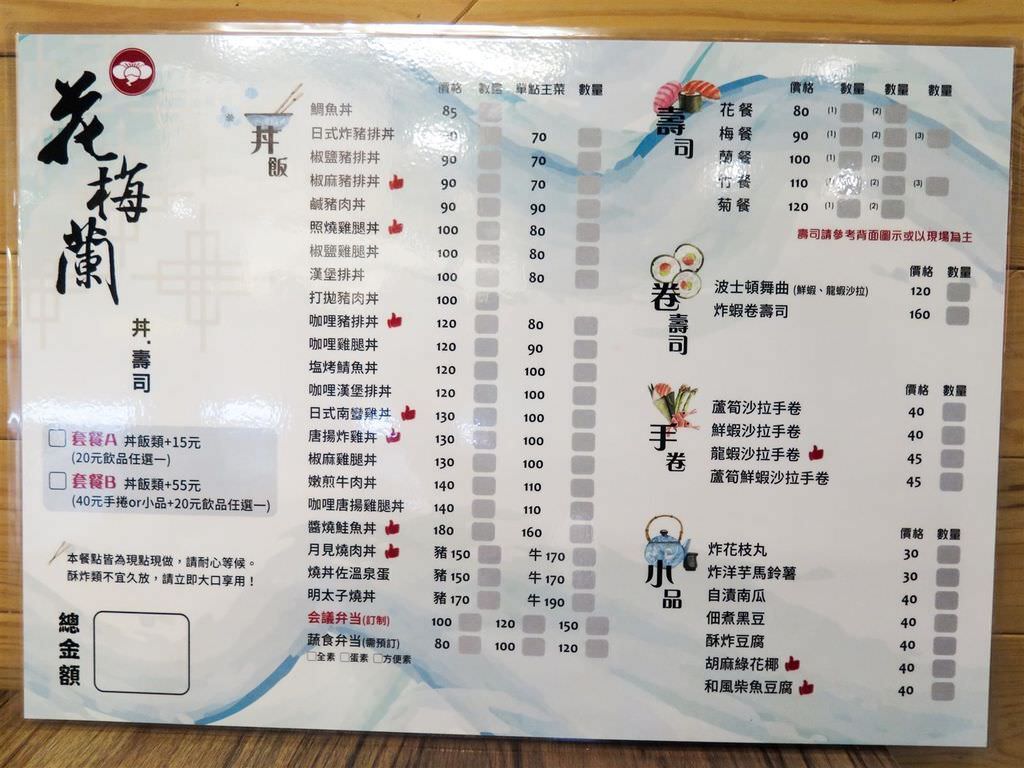 花梅蘭
丼.壽司
套餐A 丼飯類+15元
(20元飲品任選一)
套餐B 丼飯類+55元
(40元手捲or小品+20元飲品任選一)
本餐點皆為現點現做，請耐心等候。
酥炸類不宜久放，請立即大口享用！
總金額
丼飯
價格 數量 單點主菜 數量
鯛魚丼 85
日式炸豬排丼 70
椒鹽豬排丼 90 70
椒麻豬排丼 90 70
鹹豬肉丼 90 90
照燒雞腿丼 100 80
椒鹽雞腿丼 100 80
漢堡排丼 100 80
打拋豬肉丼 100
咖哩豬排丼 120 80
咖哩雞腿丼 120 90
塩烤鯖魚丼 120 100
咖哩漢堡排丼 120 100
日式南蠻雞丼 130 100
唐揚炸雞丼 130 100
椒麻雞腿丼 130 100
嫩煎牛肉丼 140 110
咖哩唐揚雞腿丼 140 110
醬燒鮭魚丼 180 160
月見燒肉丼 豬150 牛170
燒丼佐溫泉蛋 豬150 牛170
明太子燒丼 豬170 牛190
会議弁当(訂制) 100 120 150
蔬食弁当(需預訂) 80 100 120
全素 蛋素 方便素
壽司
價格 數量 數量 數量
花餐 80 (1) (2)
梅餐 90 (1) (2) (3)
蘭餐 100 (1) (2)
竹餐 110 (1) (2) (3)
菊餐 120 (1) (2)
壽司請參考背面圖示或以現場為主
卷壽司
價格 數量
波士頓舞曲 (鮮蝦、龍蝦沙拉) 120
炸蝦卷壽司 160
手卷
價格 數量
蘆筍沙拉手卷 40
鮮蝦沙拉手卷 40
龍蝦沙拉手卷 45
蘆筍鮮蝦沙拉手卷 45
小品
價格 數量
炸花枝丸 30
炸洋芋馬鈴薯 30
自漬南瓜 40
佃煮黑豆 40
酥炸豆腐 40
胡麻綠花椰 40
和風柴魚豆腐 40